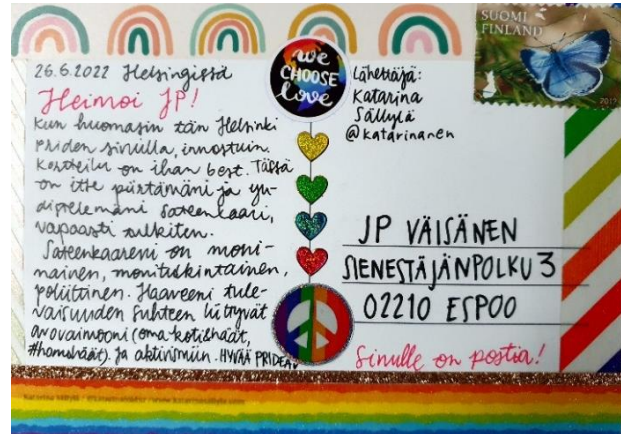 SUOMI
FINLAND
2019
we
CHOOSE
love
26.6.2022 Helsingissä
Heimoi JP!
Kun huomasin tän Helsinki
Priden sinulla, innostuin.
Korteilu on ihan best. Tässä
on itse piirtämäni ja yh-
distelemäni sateenkaari,
vapaasti tulkiten.
Sateenkaareni on moni-
nainen, monitiskintainen,
poliittinen. Haaveeni tule-
vaisuuden suhteen liittyvät
avovaimooni (oma koti&häät,
#homohäät). ja aktivismiin. HYVÄÄ PRIDEA
Lähettäjä:
Katarina
Sällylä
@katarinanen
JP VÄISÄNEN
SIENESTÄJÄNPOLKU 3
02210 ESPOO
Sinulle on postia!